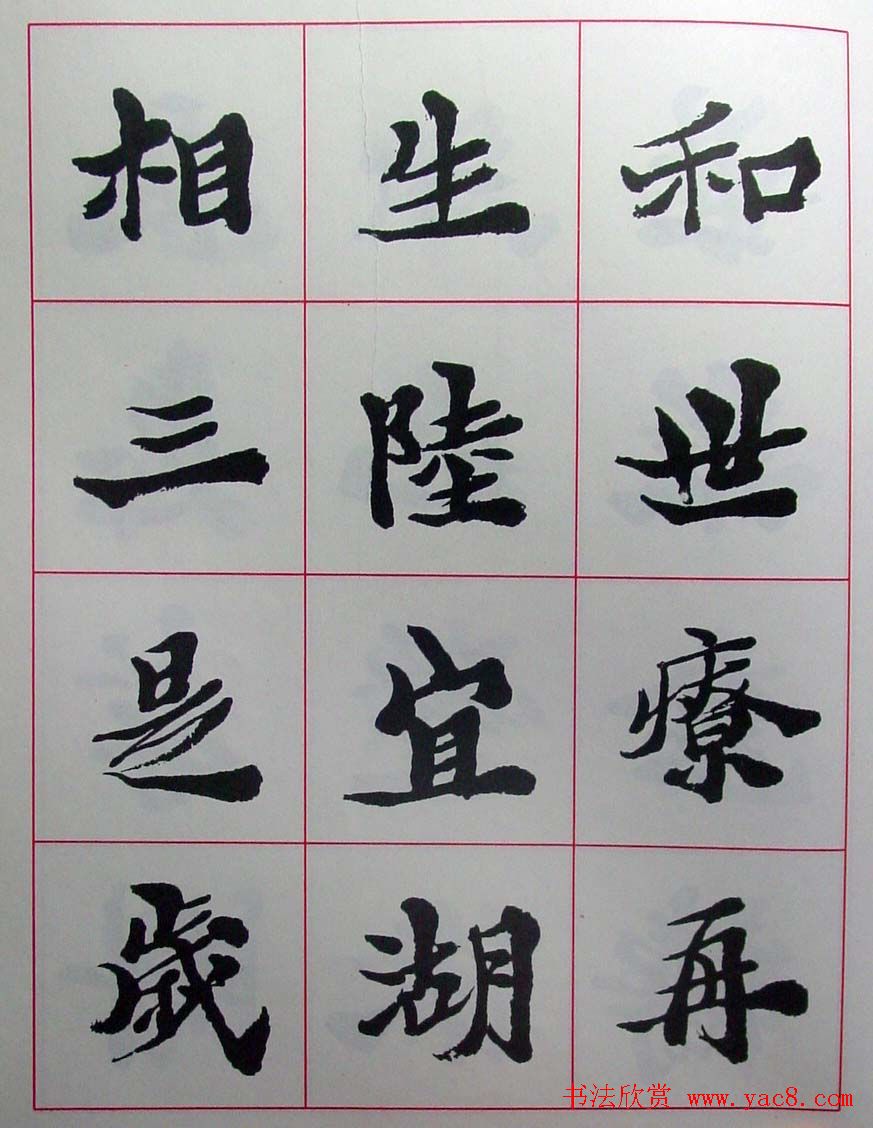 和世療再
生陸宜湖
相三是歲
书法欣赏 www.yac8.com